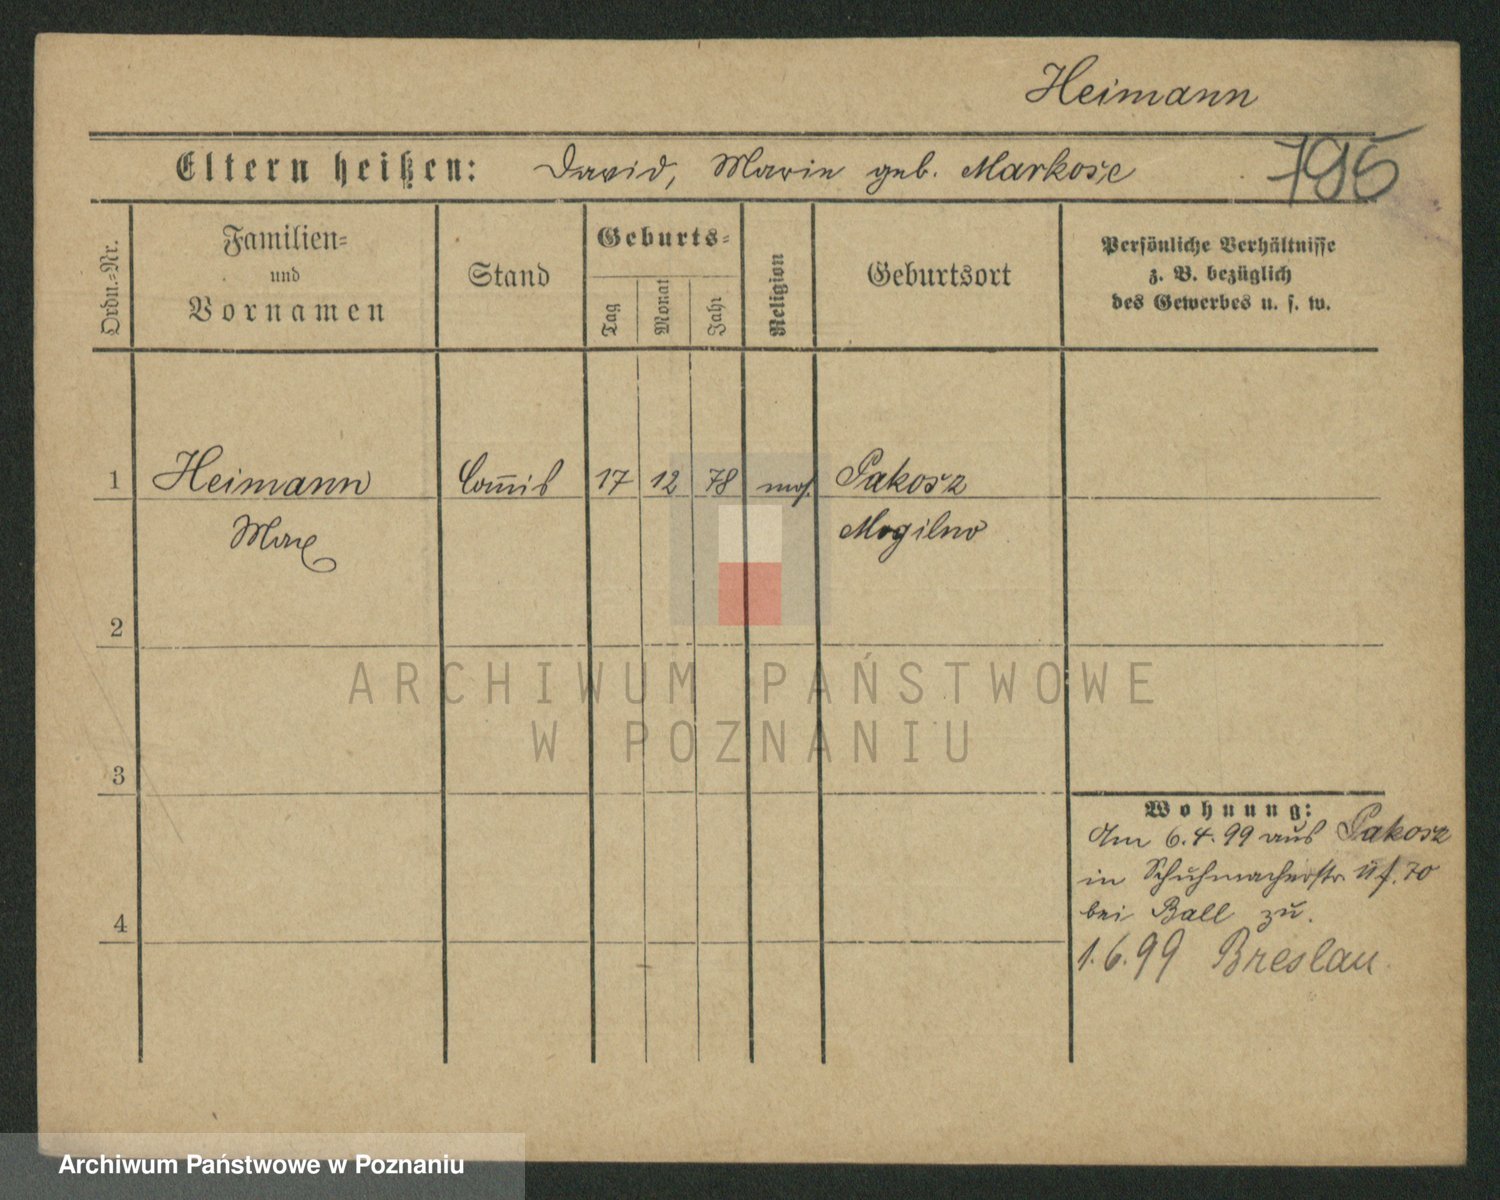 Heimann
Eltern heißen: David, Marie geb. Markose
795
Ordn.-Nr.
Familien-
und
Vornamen
Stand
Geburts-
Tag
Monat
Jahr
Religion
Geburtsort
Persönliche Verhältnisse
z. B. bezüglich
des Gewerbes u. s. w.
1 Heimann Com̅is 17 12 78 mos. Pakosz
Max Mogilno
2
3
4
Wohnung:
Am 6.4.99 aus Pakosz
in Schuhmacherstr. 70
bei Ball zu.
1.6.99 Breslau.
ARCHIWUM PAŃSTWOWE
W POZNANIU
Archiwum Państwowe w Poznaniu